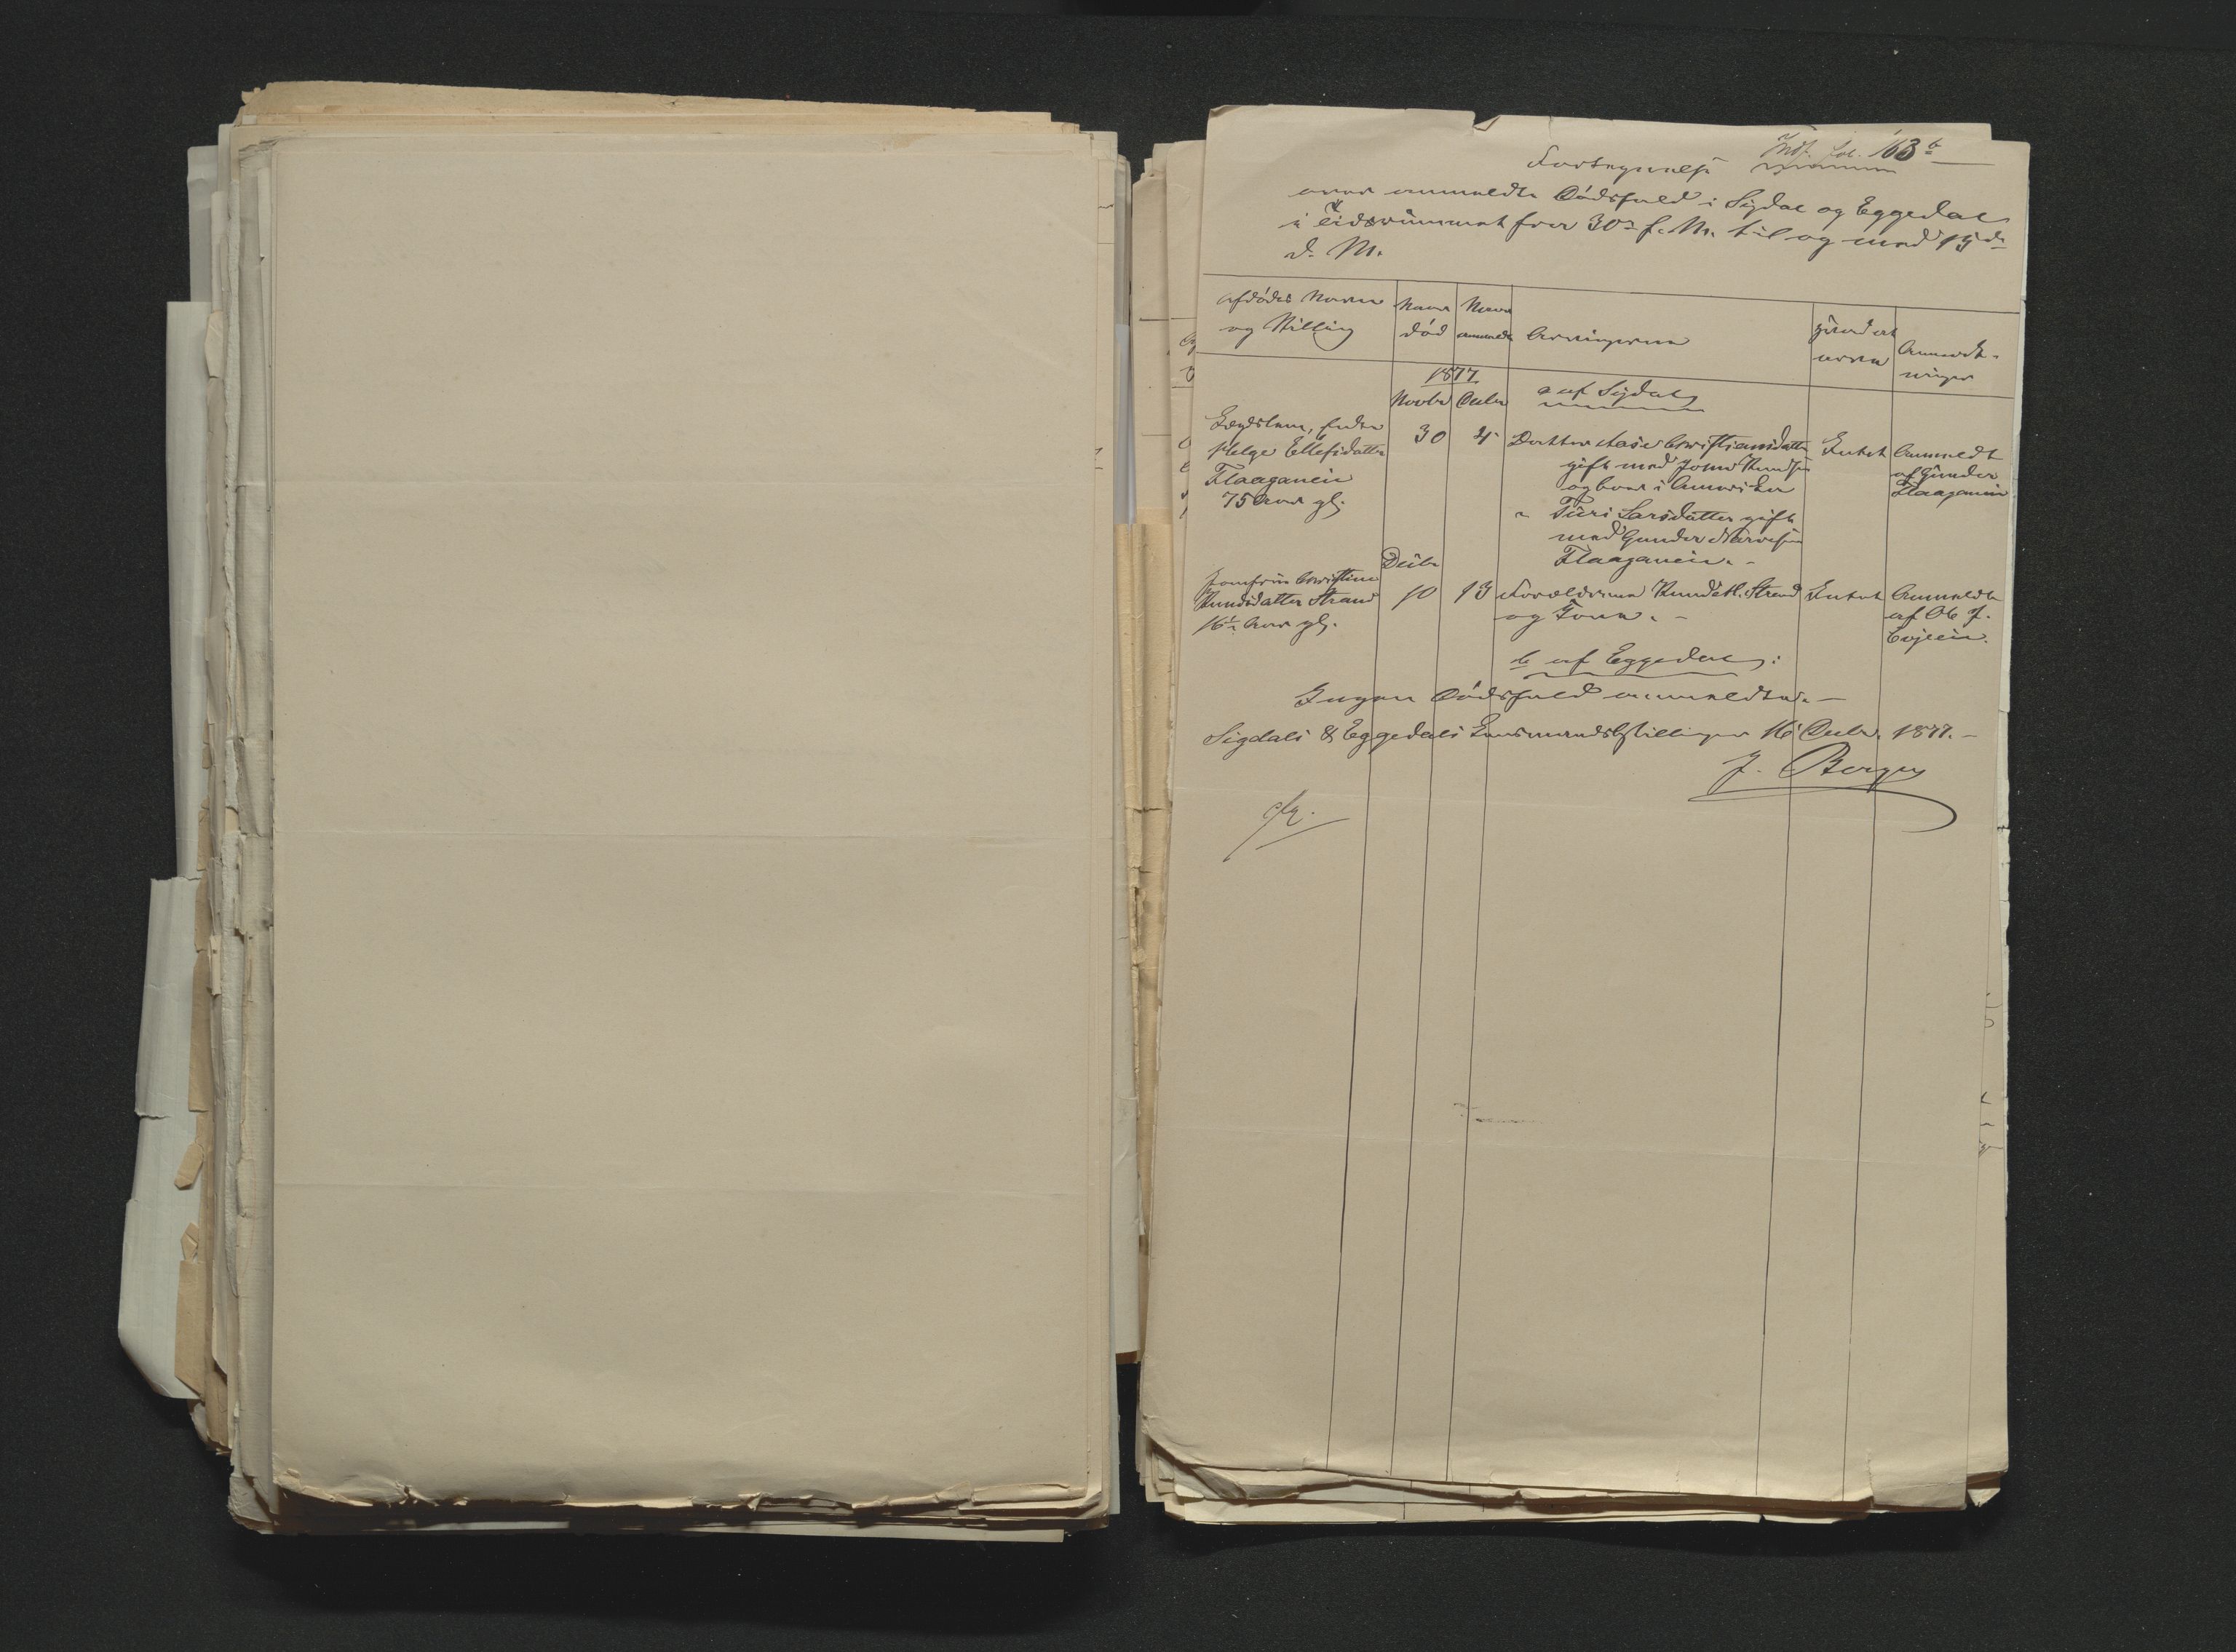 Indf. fol. 163 b
Fortegnelse
over anmeldte Dødsfald i Sigdal og Eggedal
i Tidsrummet fra 30te f. M. til og med 15de
d. M.
Afdødes Navn og Stilling
Naar død
Naar anmeldt
Arvingerne
Anmærkninger
1877.
Novbr Decbr
a af Sigdal
Lægdslem, Enke
Helge Ellefsdatter
Flaaganeie
75 Aar gl.
30
4
Datter Aase Christiansdatter
gift med John Knudsen
og boer i Amerika
" Turi Larsdatter gift
med Gunder Narvesen
Flaaganeie. -
Intet
Anmeldt
af Gunder
Flaaganeie
Decbr
Jomfru Christine
Knudsdatter Strand
16 ½ Aar gl.
10
13
Forældrene Knud Strand
og Tone. -
Intet
Anmeldt
af Ole J.
Evjeeie.
b af Eggedal:
Ingen Dødsfald anmeldte. -
Sigdals & Eggedals Lensmandsbestilling 16 Decbr. 1877. -
J. Berger